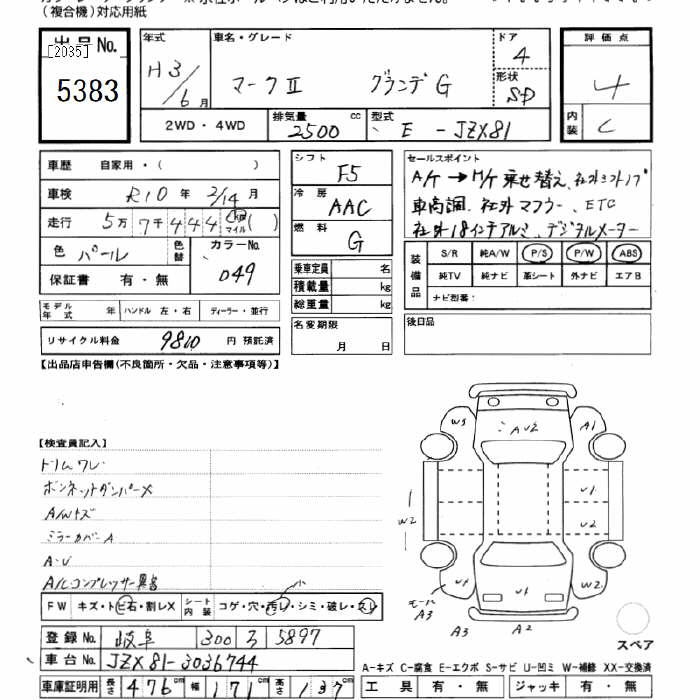 (複合機)対応用紙
出品No.
[2035]
5383
年式
H3/6月
車名・グレード
マークⅡ グランデG
ドア
4
形状
SD
評価点
4
内装
C
2WD・4WD
排気量 2500 cc
型式 E-JZX81
車歴 自家用・( )
車検 R10年 2/14月
走行 5万7千444 km マイル ( )
色 パール
色替
カラーNo. 049
保証書 有・無
シフト F5
冷房 AAC
燃料 G
セールスポイント
A/T→M/T 乗せ替え、社外シフトノブ
車高調、社外マフラー、ETC
社外18インチアルミ、デジタルメーター
装備品
S/R 純A/W P/S P/W ABS
純TV 純ナビ 革シート 外ナビ エアB
ナビ型番:
乗車定員 名
積載量 kg
総重量 kg
モデル年式 年 ハンドル 左・右 ディーラー・並行
リサイクル料金 9810 円 預託済
名変期限 月 日
後日品
【出品店申告欄(不良箇所・欠品・注意事項等)】
【検査員記入】
トリムワレ
ボンネットダンパーX
A/Wキズ
ミラーカバーA
A・U
A/Cコンプレッサー異音
FW キズ・トビ石・割レX
シート内装 コゲ・穴・汚レ・シミ・破レ・スレ
小
登録No. 岐阜 300 ろ 5897
車台No. JZX81-3036744
車庫証明用 長さ 476cm 幅 171cm 高さ 137cm
W3 AU2 A1
U1
W2 U2
U1 W2
モールA3
A3 A2
スペア
A-キズ C-腐食 E-エクボ S-サビ U-凹ミ W-補修 XX-交換済
工具 有・無 ジャッキ 有・無